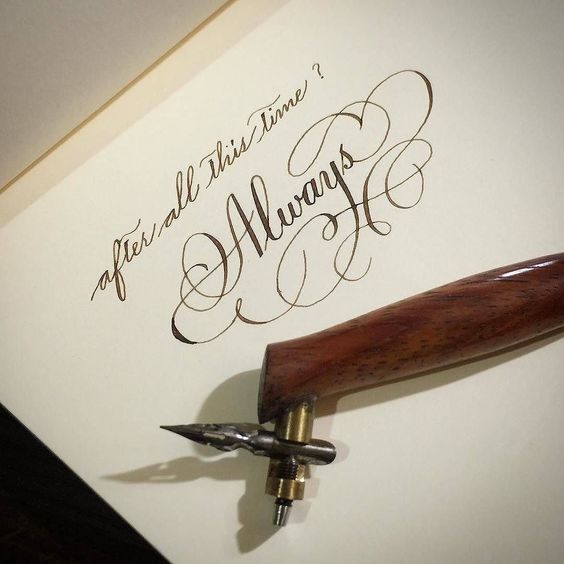 after all this time?
Always